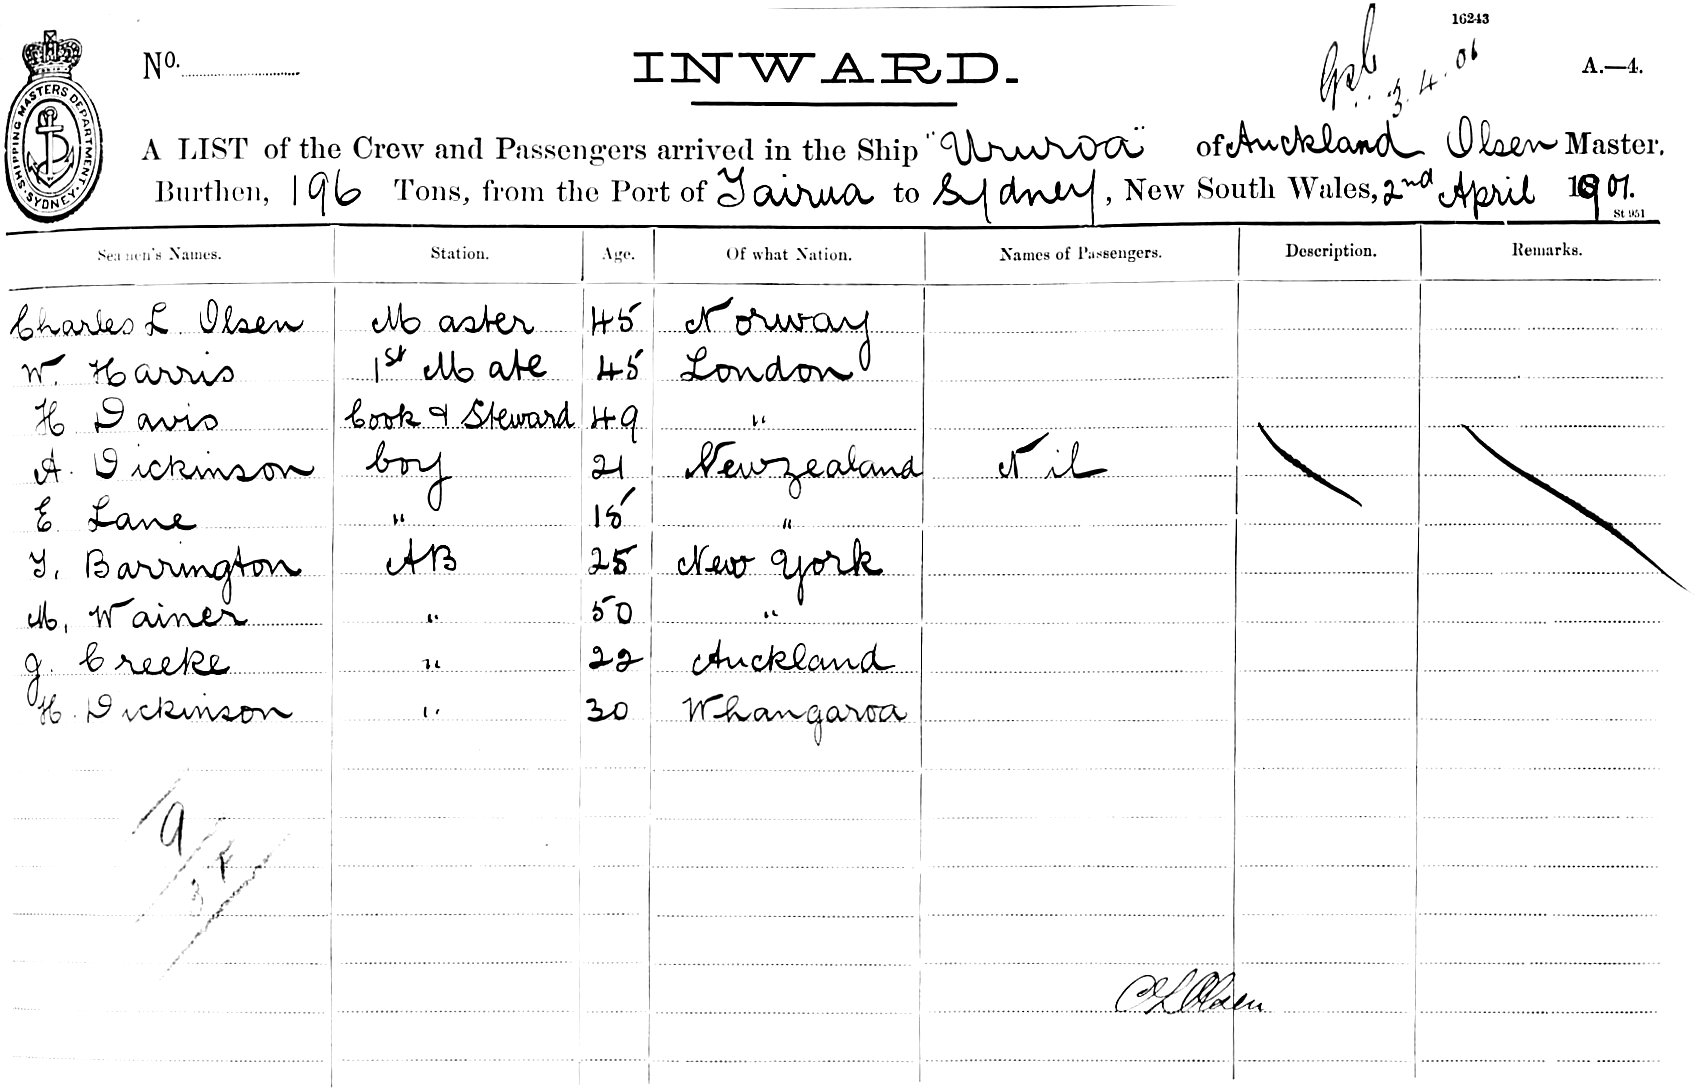 16243
No.
INWARD.
3.4.01
A.—4.
SHIPPING MASTERS DEPARTMENT SYDNEY
A LIST of the Crew and Passengers arrived in the Ship "Ururoa" of Auckland Olsen Master,
Burthen, 196 Tons, from the Port of Tairua to Sydney, New South Wales, 2nd April 1901.
St 951
Seamen's Names. Station. Age. Of what Nation. Names of Passengers. Description. Remarks.
Charles L. Olsen Master 45 Norway
W. Harris 1st Mate 45 London
H Davis Cook & Steward 49 "
A. Dickinson boy 21 Newzealand Nil
E. Lane " 18 "
T. Barrington AB 25 New York
M. Wainer " 50 "
J. Creeke " 22 Auckland
H. Dickinson " 30 Whangaroa
9
C L Olsen